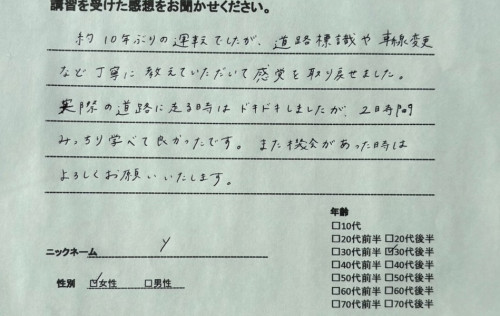 講習を受けた感想をお聞かせください。
約10年ぶりの運転でしたが、道路標識や車線変更
など丁寧に教えていただいて感覚を取り戻せました。
実際の道路に走る時はドキドキしましたが、2日時間
みっちり学べて良かったです。また機会があった時は
よろしくお願いいたします。
ニックネーム Y
性別 ☑女性 □男性
年齢
□10代
□20代前半 □20代後半
□30代前半 ☑30代後半
□40代前半 □40代後半
□50代前半 □50代後半
□60代前半 □60代後半
□70代前半 □70代後半